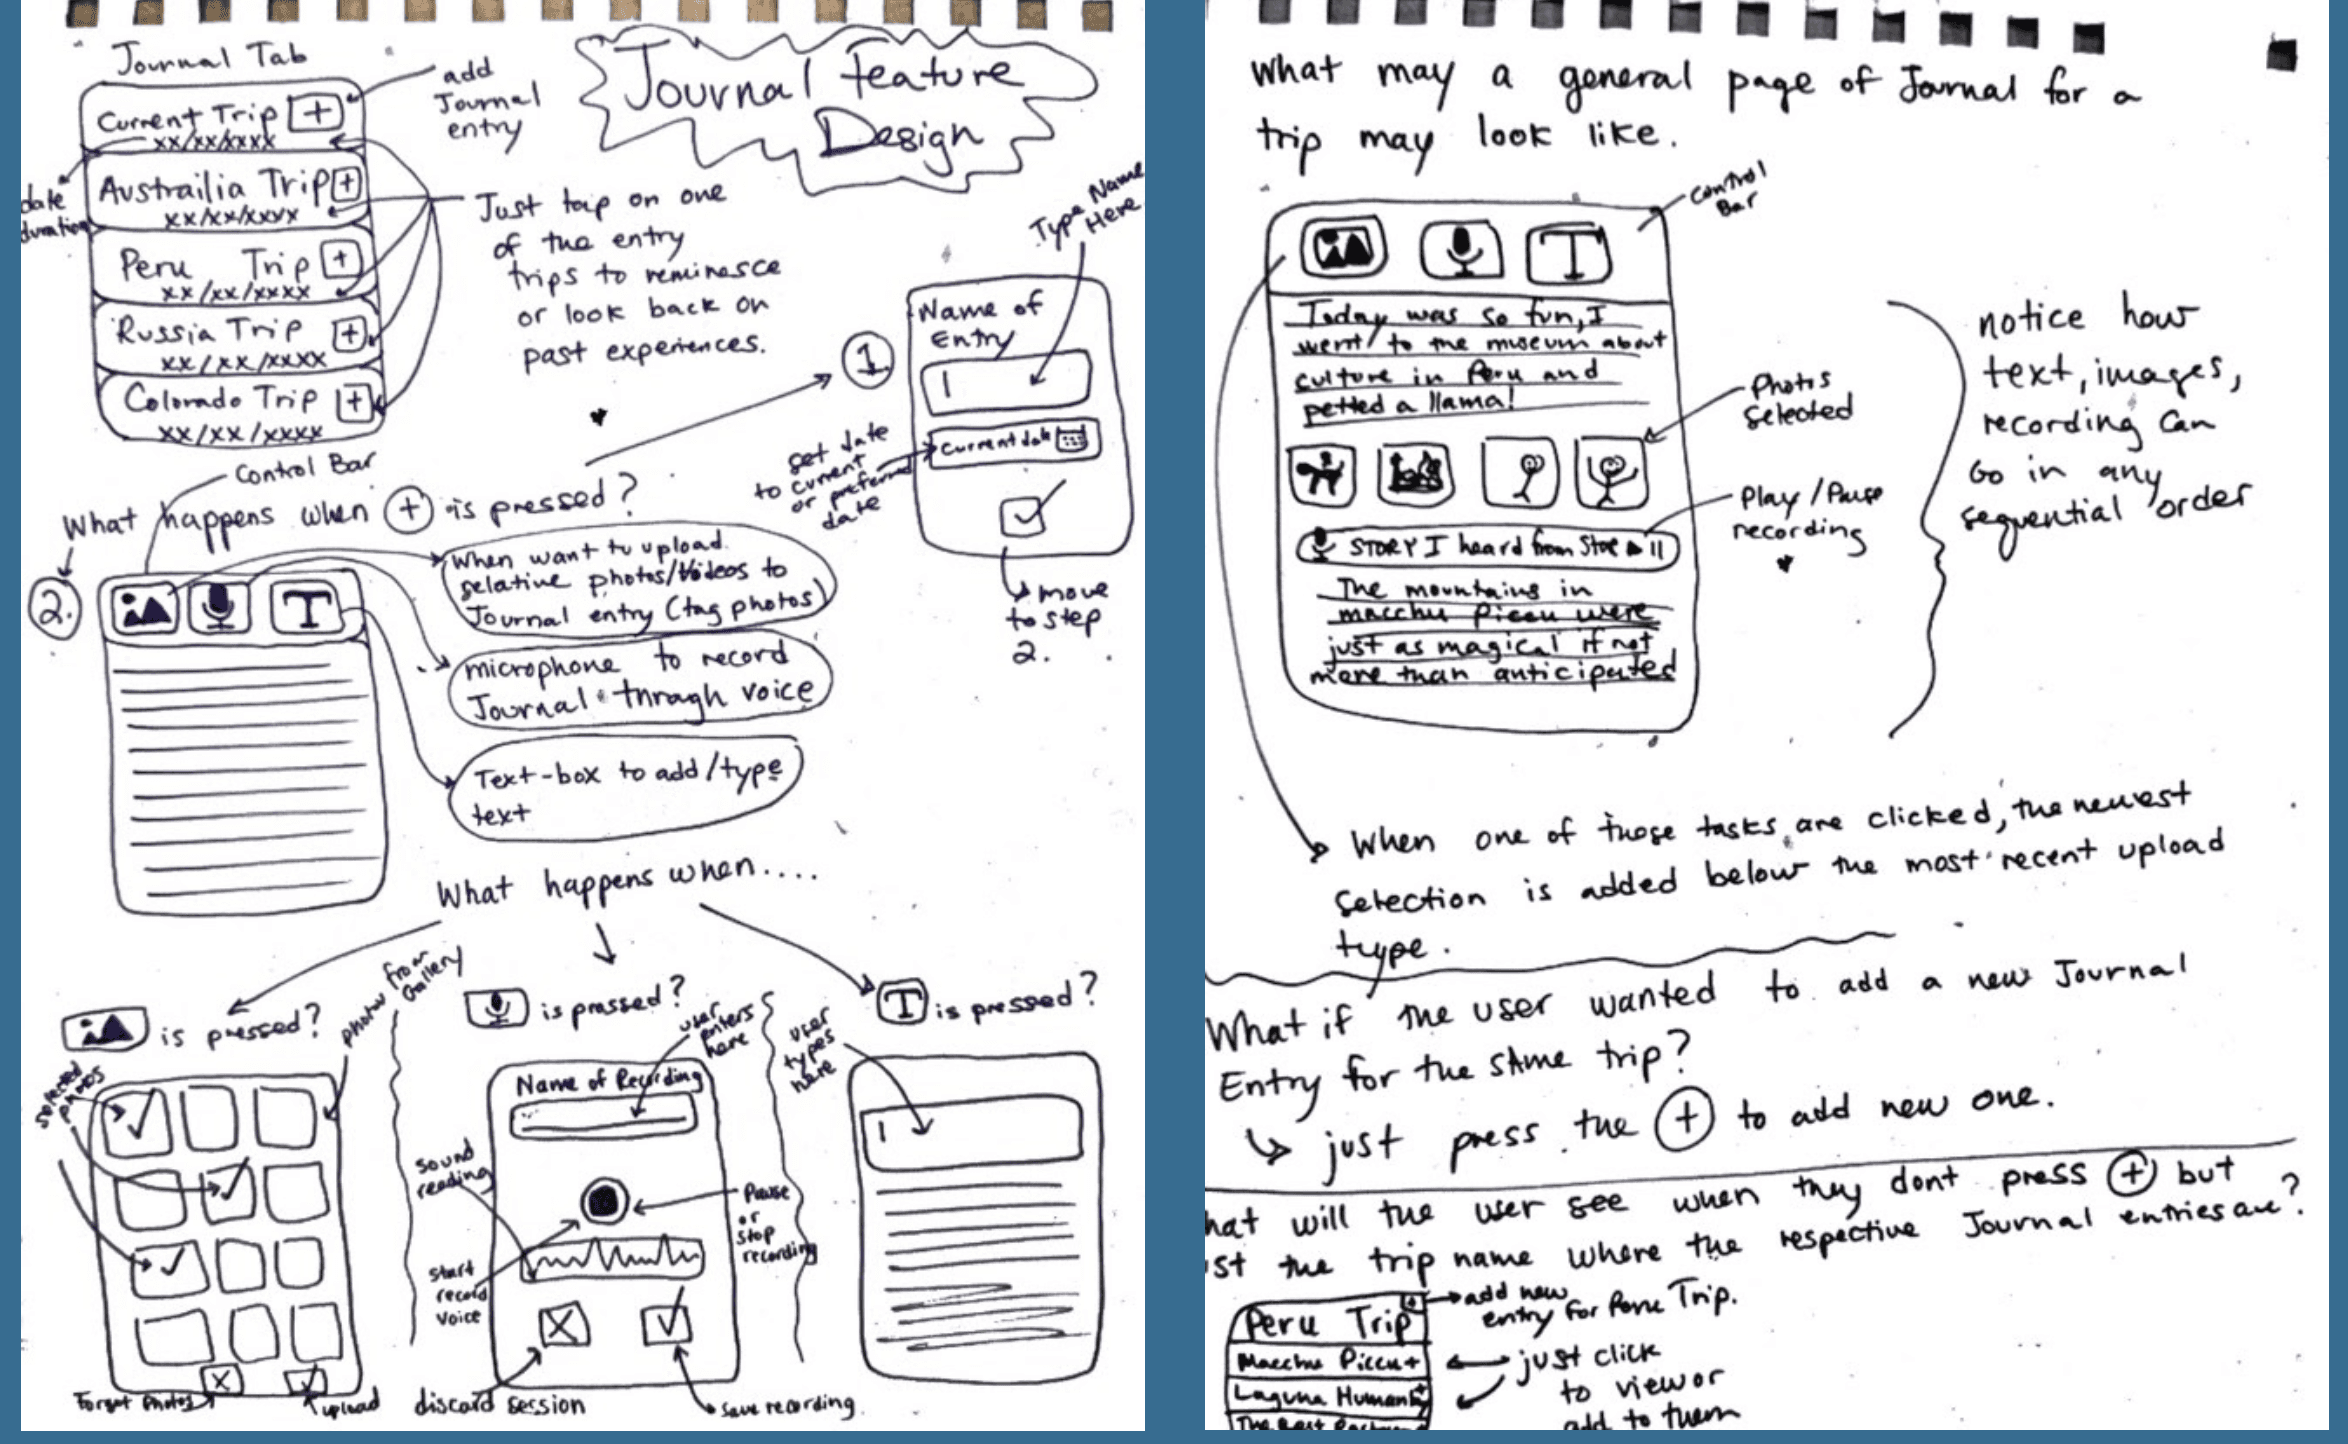 Journal Tab
Current Trip +
xx/xx/xxxx
Austrailia Trip +
xx/xx/xxxx
Peru Trip +
xx/xx/xxxx
Russia Trip +
xx/xx/xxxx
Colorado Trip +
xx/xx/xxxx
date
duration
add
Journal
entry
Journal feature
Design
Just tap on one
of the entry
trips to reminesce
or look back on
past experiences.
Type Name
Here
1.
Name of
Entry
Current date
set date
to current
or preferred
date
move
to step
2.
Control Bar
What happens when + is pressed?
2.
T
When want to upload
relative photos/videos to
Journal entry (tag photos)
microphone to record
Journal through voice
Text-box to add/type
text
What happens when....
is pressed?
photos from
Gallery
selected
photos
Forget Photos
X
upload
is pressed?
user
enters
here
Name of Recording
sound
reading
Pause
or
stop
recording
start
record
voice
X
discard session
save recording.
T is pressed?
user
types
here
What may a general page of Journal for a
trip may look like.
Control
Bar
T
Today was so fun, I
went to the museum about
culture in Peru and
petted a llama!
Photos
selected
Play/Pause
recording
STORY I heard from
The mountains in
macchu Piccu were
just as magical if not
more than anticipated
notice how
text, images,
recording can
Go in any
sequential order
When one of those tasks are clicked, the newest
selection is added below the most recent upload
type.
What if the user wanted to add a new Journal
Entry for the same trip?
just press the + to add new one.
hat will the user see when they dont press + but
st the trip name where the respective Journal entries are?
Peru Trip +
add new
entry for Peru Trip.
Macchu Piccu +
Laguna Human
just click
to view or
add to them
The Best